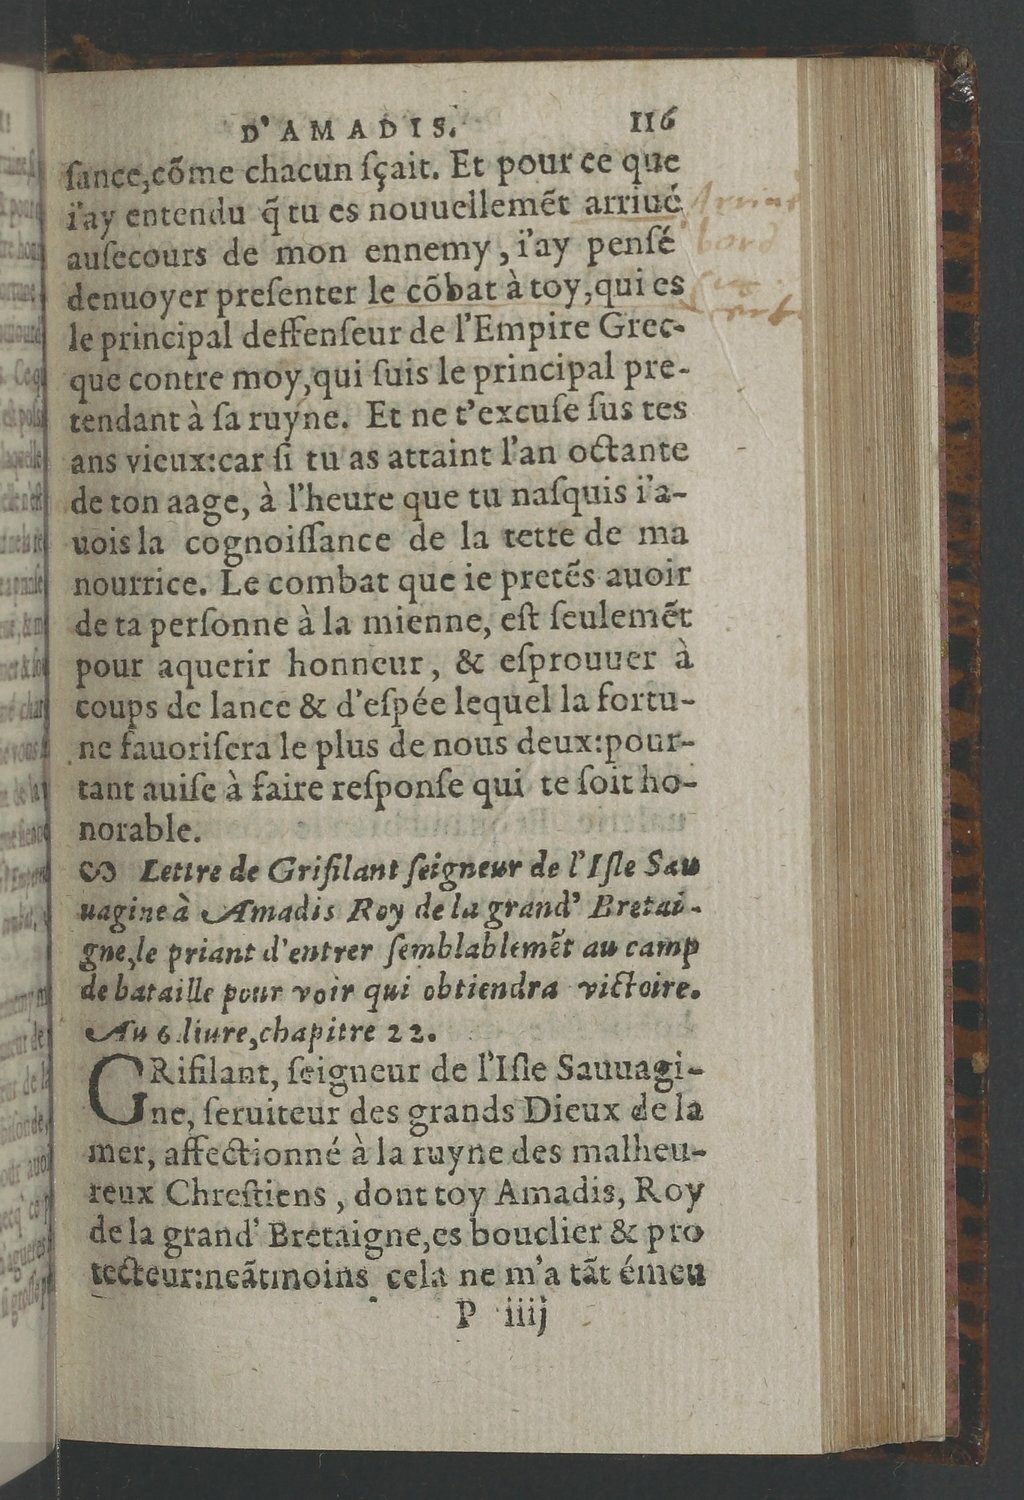 D'AMADIS. 116
ſance,cõme chacun ſçait. Et pour ce que
i'ay entendu q̃ tu es nouuellemẽt arriué
auſecours de mon ennemy, i'ay penſé
denuoyer preſenter le cõbat à toy,qui es
le principal deffenſeur de l'Empire Grec-
que contre moy,qui ſuis le principal pre-
tendant à ſa ruyne. Et ne t'excuſe ſus tes
ans vieux:car ſi tu as attaint l'an octante
de ton aage, à l'heure que tu naſquis i'a-
uois la cognoiſſance de la tette de ma
nourrice. Le combat que ie pretẽs auoir
de ta perſonne à la mienne, eſt ſeulemẽt
pour aquerir honneur, & eſprouuer à
coups de lance & d'eſpée lequel la fortu-
ne fauoriſera le plus de nous deux:pour-
tant auiſe à faire reſponſe qui te ſoit ho-
norable.
Lettre de Griſilant ſeigneur de l'Iſle Sau
uagine à Amadis Roy de la grand' Bretai-
gne,le priant d'entrer ſemblablemẽt au camp
de bataille pour voir qui obtiendra victoire.
Au 6.liure,chapitre 22.
GRiſilant, ſeigneur de l'Iſle Sauuagi-
ne, ſeruiteur des grands Dieux de la
mer, affectionné à la ruyne des malheu-
reux Chreſtiens, dont toy Amadis, Roy
de la grand' Bretaigne,es bouclier & pro
tecteur:neãtmoins cela ne m'a tãt émeu
P iiij